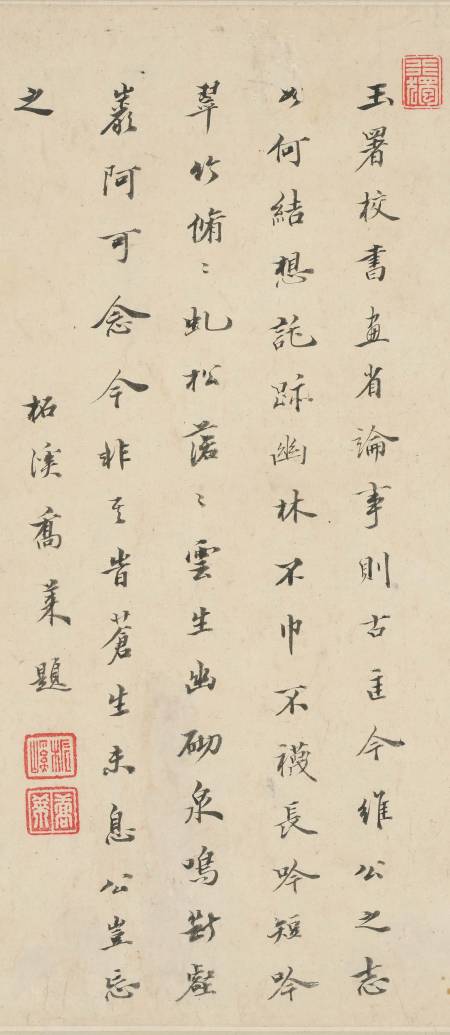 玉署校書畫省論事則古匡今維公之志
如何結想託跡幽林不巾不襪長吟短吟
翠竹脩〻虬松落〻雲生幽砌泉鳴斷壑
巖阿可念今非其旹蒼生未息公豈忘
之
柘溪喬萊題
柘溪
喬萊